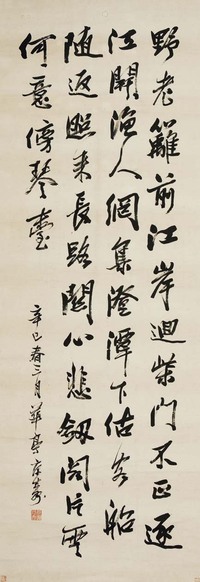 野老籬前江岸迴柴門不正逐
江開漁人網集澄潭下估客船
隨返照來長路關心悲劍閣片雲
何意傍琴臺
辛巳春三月華亭